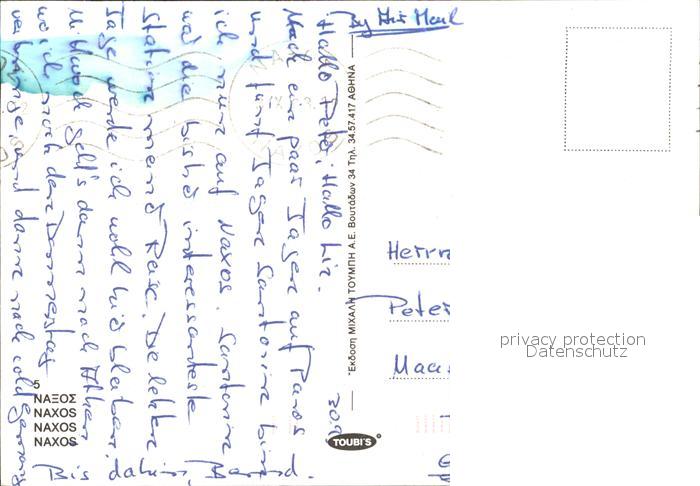 By Air Mail
30.9.
Hallo Peter, Hallo Liz.
Nach ein paar Tagen auf Paros
und fünf Tagen Santorini bin
ich nun auf Naxos. Santorini
war die bisher interessanteste
Station meiner Reise. Die letzten
Tage werde ich wohl hier bleiben.
Mittwoch geht's dann nach Athen
wo ich noch den Donnerstag
verbringe und dann nach cold germany
Bis dahin, Bernd.
Herrn
Peter
Maa
Έκδοση ΜΙΧΑΛΗ ΤΟΥΜΠΗ Α.Ε. Βουτάδων 34 Τηλ. 34.57.417 ΑΘΗΝΑ
TOUBI'S
5
ΝΑΞΟΣ
NAXOS
NAXOS
NAXOS
privacy protection
Datenschutz